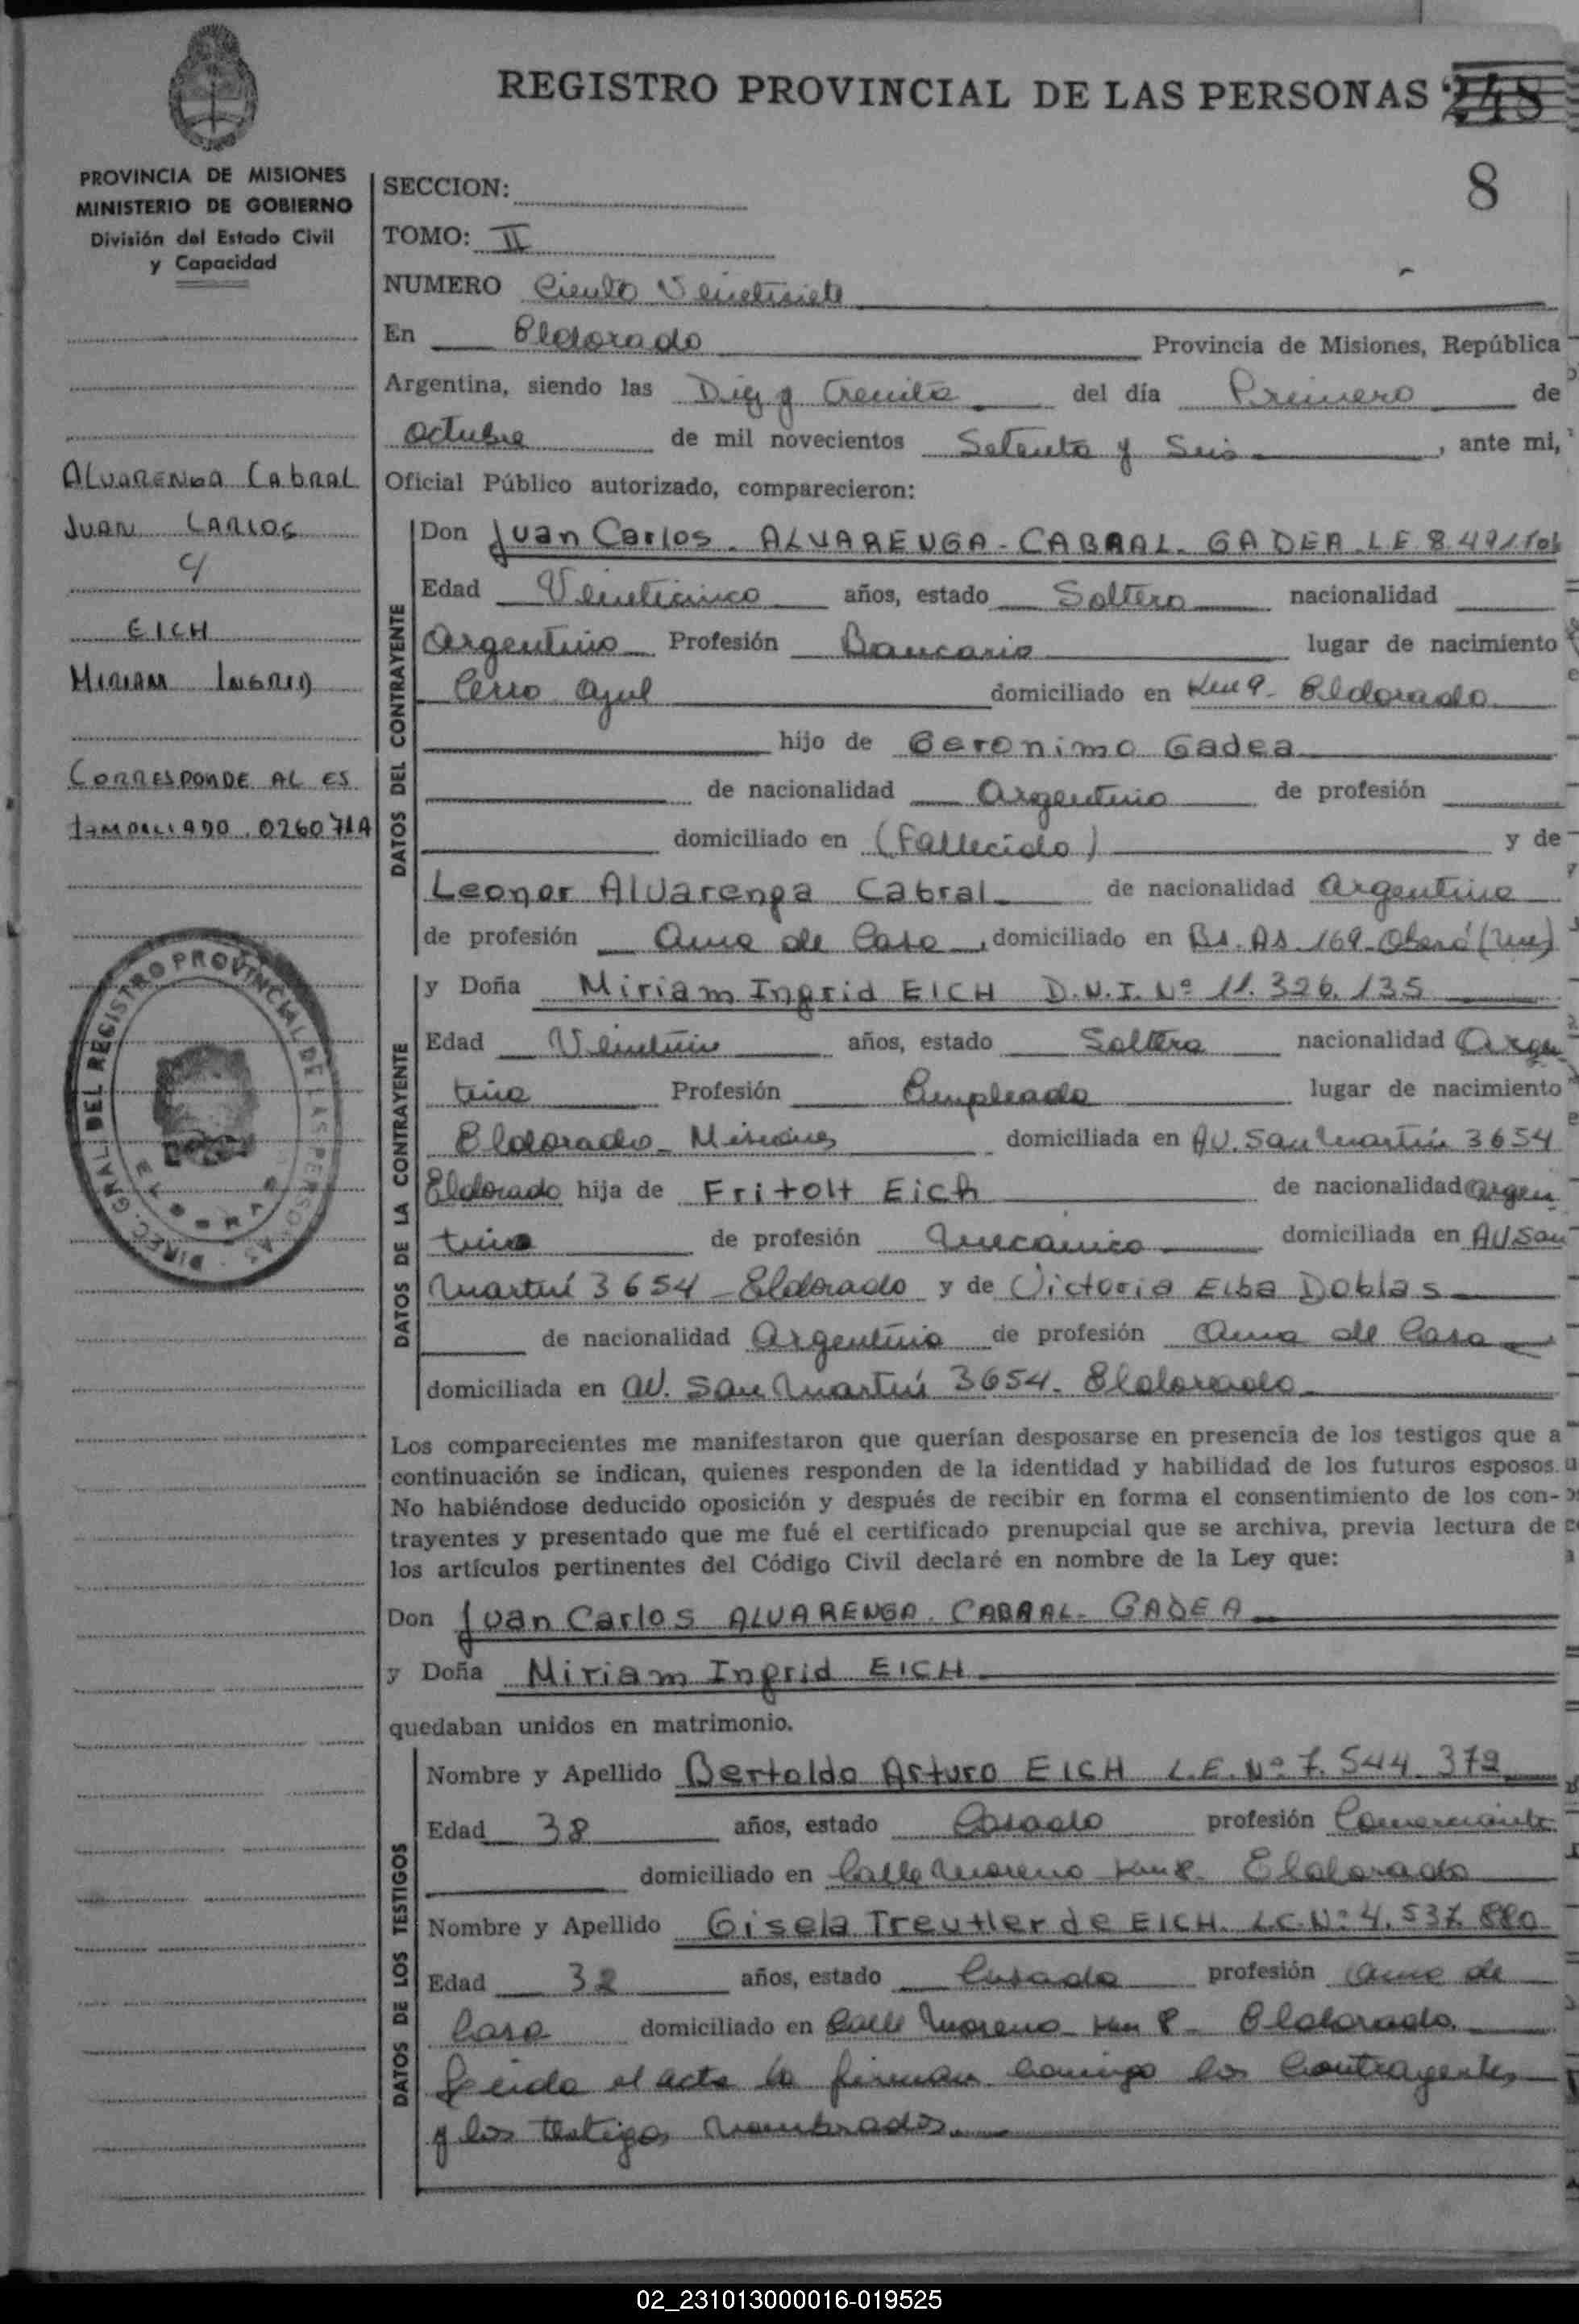 REGISTRO PROVINCIAL DE LAS PERSONAS 248
8
PROVINCIA DE MISIONES
MINISTERIO DE GOBIERNO
División del Estado Civil
y Capacidad
ALVARENGA CABRAL
JUAN CARLOS
c/
EICH
MIRIAM INGRID
CORRESPONDE AL ES
TAMPILLADO 026071A
DIREC. GRAL. DEL REGISTRO PROVINCIAL DE LAS PERSONAS
SECCION:
TOMO: II
NUMERO Ciento Veintisiete
En Eldorado Provincia de Misiones, República
Argentina, siendo las Diez y treinta del día Primero de
octubre de mil novecientos Setenta y Seis, ante mi,
Oficial Público autorizado, comparecieron:
DATOS DEL CONTRAYENTE
Don Juan Carlos ALVARENGA-CABRAL-GADEA L.E. 8.491.
Edad Veinticinco años, estado Soltero nacionalidad
Argentino Profesión Bancario lugar de nacimiento
Cerro Azul domiciliado en Km 9- Eldorado
hijo de Geronimo Gadea
de nacionalidad Argentino de profesión
domiciliado en (Fallecido) y de
Leonor Alvarenga Cabral de nacionalidad argentina
de profesión Ama de Casa, domiciliado en Bs. As. 169-Oberá (Mnes)
DATOS DE LA CONTRAYENTE
y Doña Miriam Ingrid EICH D.N.I. Nº 11.326.135
Edad Veintiún años, estado Soltera nacionalidad Argen
tina Profesión Empleada lugar de nacimiento
Eldorado-Misiones domiciliada en AV. San Martín 3654
Eldorado hija de Fritolt Eich de nacionalidad argen
tina de profesión mecanico domiciliada en AV San
Martín 3654-Eldorado y de Victoria Elba Doblas
de nacionalidad Argentina de profesión Ama de Casa
domiciliada en av. San Martín 3654- Eldorado
Los comparecientes me manifestaron que querían desposarse en presencia de los testigos que a
continuación se indican, quienes responden de la identidad y habilidad de los futuros esposos.
No habiéndose deducido oposición y después de recibir en forma el consentimiento de los con-
trayentes y presentado que me fué el certificado prenupcial que se archiva, previa lectura de
los artículos pertinentes del Código Civil declaré en nombre de la Ley que:
Don Juan Carlos ALVARENGA-CABRAL-GADEA
y Doña Miriam Ingrid EICH
quedaban unidos en matrimonio.
DATOS DE LOS TESTIGOS
Nombre y Apellido Bertoldo Arturo EICH L.E. Nº 7.544.372
Edad 38 años, estado Casado profesión Comerciante
domiciliado en Calle Moreno Km 8- Eldorado
Nombre y Apellido Gisela Treutler de EICH. L.C. Nº 4.537.880
Edad 32 años, estado Casada profesión ama de
Casa domiciliado en Calle Moreno Km 8- Eldorado.
Leida el acta la firman conmigo los Contrayentes
y los testigos nombrados.
02_231013000016-019525